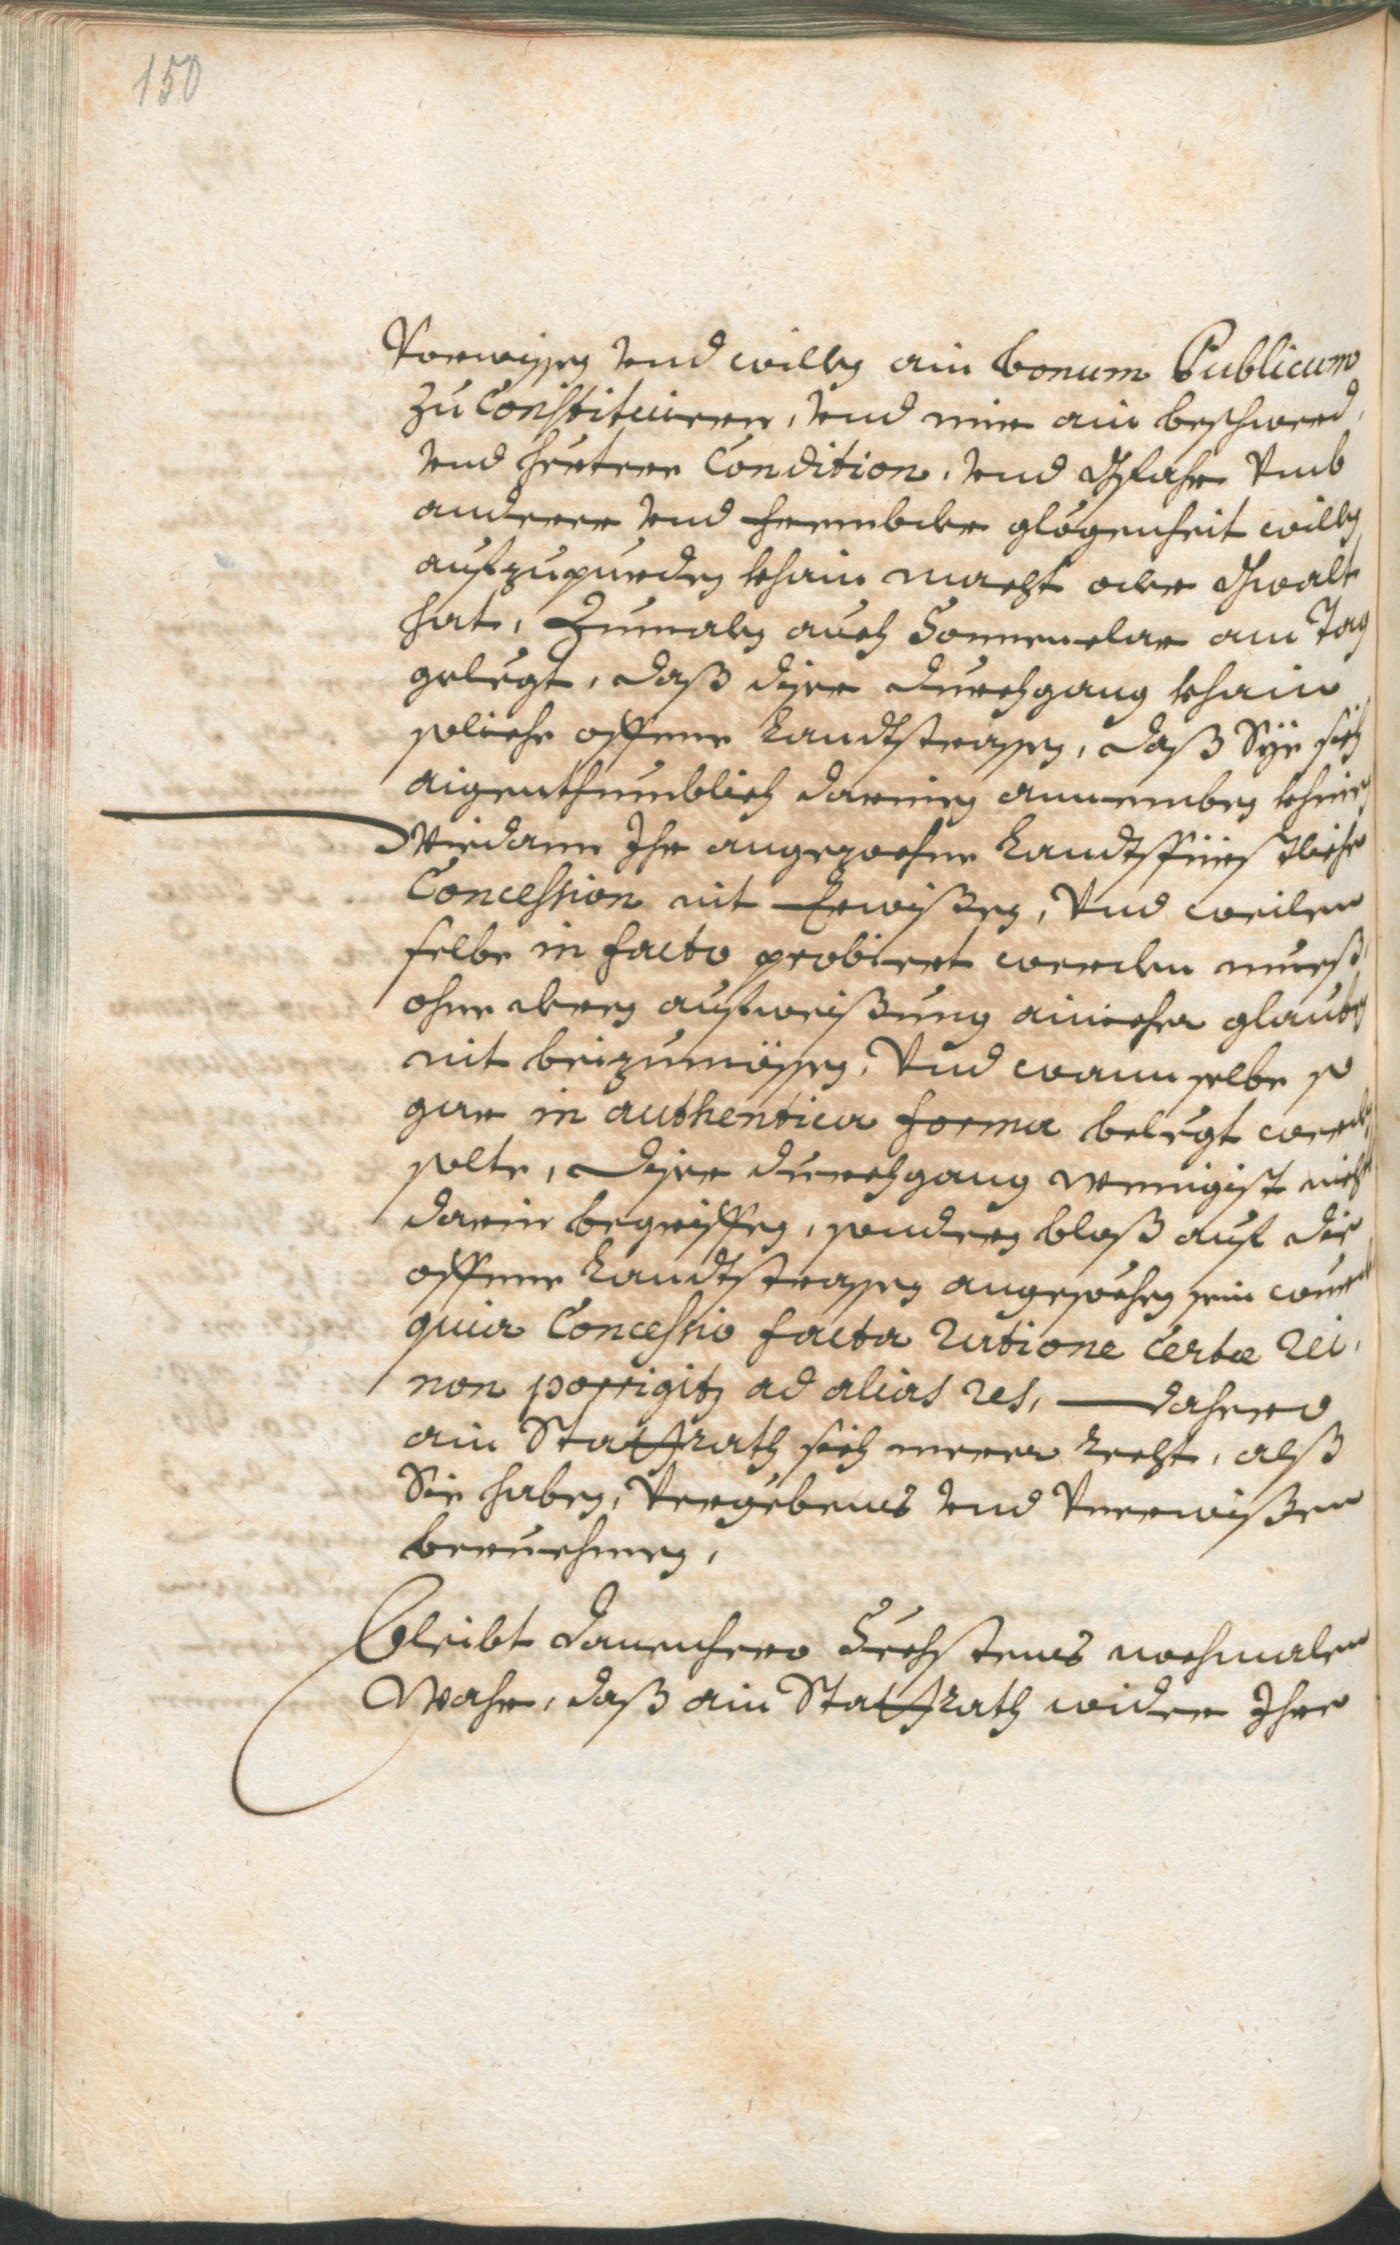 150
Vorwissen vnd willen ain bonum Publicum
zu Constituiren, vnd mir ain beschwerd,
vnd hertere Condition, vnd Gfahr vmb
anderer vnd frembder glögenheit willen
aufzupürden khain macht oder Gwalt
hat, Zumalen auch Sonnenclar am Tag
geleegt, daß diser durchgang khain
soliche offene Landtstrassen, daß Sye sich
aigenthumblich darein annemben khinen
Wiedann Ihr angezochne Landtsfürstliche
Concession nit Erwißen, Vnd weilen
selbe in facto probiert werden mueß,
ohne deren aufweißung ainicher glauben
nit beizumössen, Vnd wann selbe so
gar in authentica forma belegt werden
solte, diser durchgang wenigist nicht
darin begriffen, sondern bloß auf die
offene Landtstrassen angesehen sein wurde
quia Concessio facta ratione Certæ rei,
non porrigitur ad alias res, Dahero
ain Stattrath sich merer Recht, alß
Sie haben, Vergebens vnd Vnerwißen
beruehmen,
Bleibt dannenhero Sechstens nochmalen
Wahr, daß ain Stattrath wider Ihre